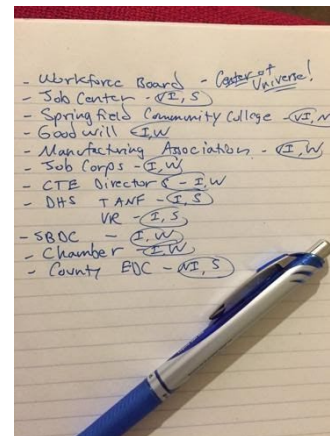 - Workforce Board - Center of Universe!
- Job Center - VI, S
- Springfield Community College - VI, W
- Goodwill - I, W
- Manufacturing Association - VI, W
- Job Corps - I, W
- CTE Directors - I, W
- DHS TANF - I, S
VR - I, S
- SBDC - I, W
- Chamber - I, W
- County EDC - VI, S